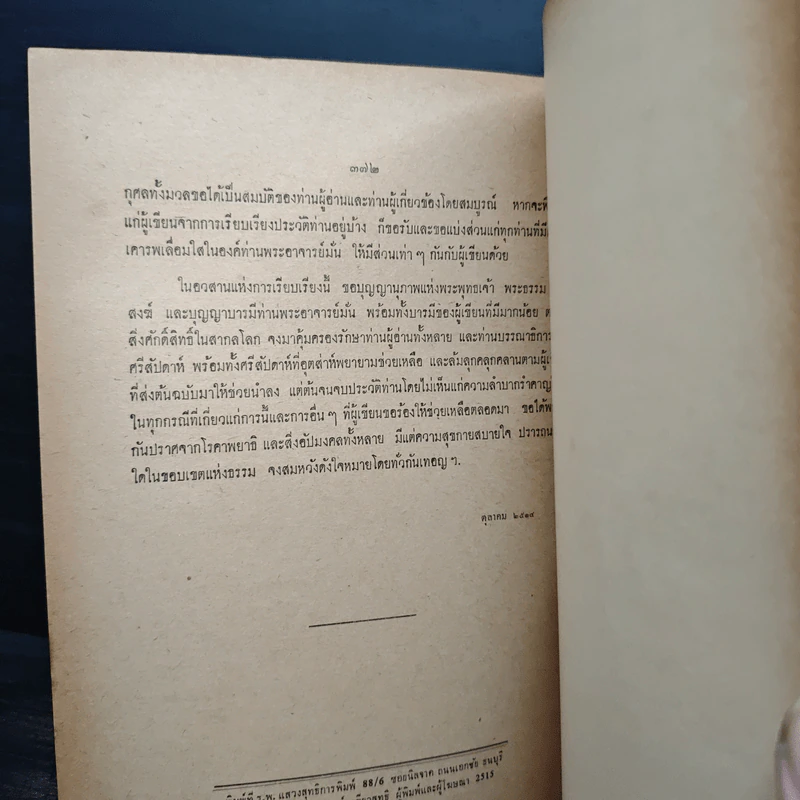 ๓๗๒
กุศลทั้งมวลขอได้เป็นสมบัติของท่านผู้อ่านและท่านผู้เกี่ยวข้องโดยสมบูรณ์ หากจะ
แก่ผู้เขียนจากการเรียบเรียงประวัติท่านอยู่บ้าง ก็ขอรับและขอแบ่งส่วนแก่ทุกท่านที่มี
เคารพเลื่อมใสในองค์ท่านพระอาจารย์มั่น ให้มีส่วนเท่า ๆ กันกับผู้เขียนด้วย
ในอวสานแห่งการเรียบเรียงนี้ ขอบุญญานุภาพแห่งพระพุทธเจ้า พระธรรม
สงฆ์ และบุญญาบารมีท่านพระอาจารย์มั่น พร้อมทั้งบารมีของผู้เขียนที่มีมากน้อย
สิ่งศักดิ์สิทธิ์ในสากลโลก จงมาคุ้มครองรักษาท่านผู้อ่านทั้งหลาย และท่านบรรณาธิการ
ศรีสัปดาห์ พร้อมทั้งศรีสัปดาห์ที่อุตส่าห์พยายามช่วยเหลือ และล้มลุกคลุกคลานตามผู้
ที่ส่งต้นฉบับมาให้ช่วยนำลง แต่ต้นจนจบประวัติท่านโดยไม่เห็นแก่ความลำบากรำคาญ
ในทุกกรณีที่เกี่ยวแก่การนี้และการอื่น ๆ ที่ผู้เขียนขอร้องให้ช่วยเหลือตลอดมา ขอได้
กันปราศจากโรคาพยาธิ และสิ่งอัปมงคลทั้งหลาย มีแต่ความสุขกายสบายใจ ปรารถน
ใดในขอบเขตแห่งธรรม จงสมหวังดังใจหมายโดยทั่วกันเทอญ ฯ.
ตุลาคม ๒๕๑๔
พิมพ์ที่ ร.พ. แสวงสุทธิการพิมพ์ 88/6 ซอยนิลจาด ถนนเอกชัย ธนบุรี
ผู้พิมพ์และผู้โฆษณา 2515